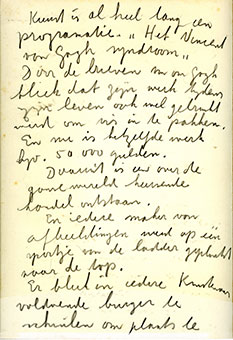 Kunst is al heel lang een
programatie. "Het Vincent
van Gogh syndroom"
Door de brieven van Gogh
bleek dat zijn werk tijdens
zijn leven ook wel gebruikt
werd om vis in te pakken.
En nu is hetzelfde werk
bjv. 50 000 gulden.
Daaruit is een over de
gehele wereld heersende
handel ontstaan.
En iedere maker van
afbeeldingen werd op één
sportje van de ladder geplaatst
naar de top.
Er bleek in iedere
voldoende burger te
schuilen om plaats te